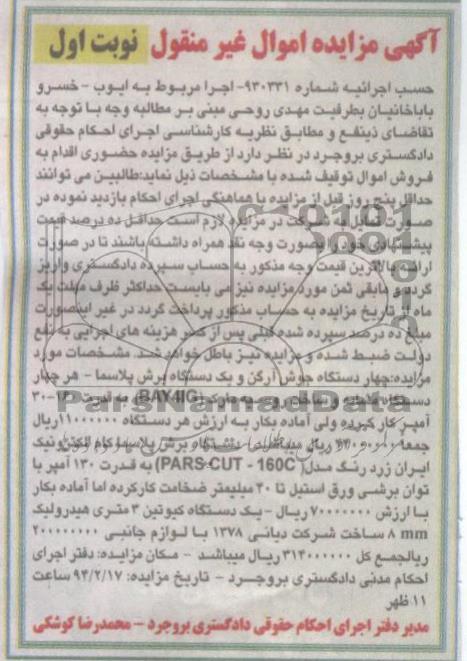 آگهی مزایده اموال غیر منقول نوبت اول
حسب اجرائیه شماره ۹۳۰۳۳۱- اجرا مربوط به ایوب - خسرو
باباخانیان بطرفیت مهدی روحی مبنی بر مطالبه وجه با توجه به
تقاضای ذینفع و مطابق نظریه کارشناسی اجرای احکام حقوقی
دادگستری بروجرد در نظر دارد از طریق مزایده حضوری اقدام به
فروش اموال توقیف شده با مشخصات ذیل نماید:طالبین می توانند
حداقل پنج روز قبل از مزایده با هماهنگی اجرای احکام بازدید نموده در
صورت تمایل به شرکت در مزایده لازم است حداقل ده درصد قیمت
پیشنهادی خود را بصورت وجه نقد همراه داشته باشند تا در صورت
ارائه بالاترین قیمت وجه مذکور به حساب سپرده دادگستری واریز
گردد و مابقی ثمن مورد مزایده نیز می بایست حداکثر ظرف مهلت یک
ماه از تاریخ مزایده به حساب مذکور پرداخت گردد در غیر اینصورت
مبلغ ده درصد سپرده شده قبلی پس از کسر هزینه های اجرایی به نفع
دولت ضبط شده و مزایده نیز باطل خواهد شد. مشخصات مورد
مزایده:چهار دستگاه جوش آرگن و یک دستگاه برش پلاسما - هر چهار
دستگاه مشابه و ساخت روسیه مارک (BAY4IG) به قدرت
آمپر کار کرده ولی آماده بکار به ارزش هر دستگاه ۱۱۰۰۰۰۰۰ریال
جمعا ریال میباشد. دستگاه برش پلاسما کام الکترونیک
ایران زرد رنگ مدل( PARS CUT - 160C) به قدرت ۱۳۰ آمپر با
توان برشی ورق استیل تا ۳۰ میلیمتر ضخامت کارکرده اما آماده بکار
با ارزش ۷۰۰۰۰۰۰۰ ریال - یک دستگاه کیوتین ۳ متری هیدرولیک
۸ mm ساخت شرکت دباتی ۱۳۷۸ با لوازم جانبی ۲۰۰۰۰۰۰۰۰
ریالجمع کل ۳۱۴۰۰۰۰۰۰ ریال میباشد - مکان مزایده: دفتر اجرای
احکام مدنی دادگستری بروجرد - تاریخ مزایده: ۹۴/۲/۱۷ ساعت
۱۱ ظهر
مدیر دفتر اجرای احکام حقوقی دادگستری بروجرد - محمدرضا کوشکی
ParsNamadData